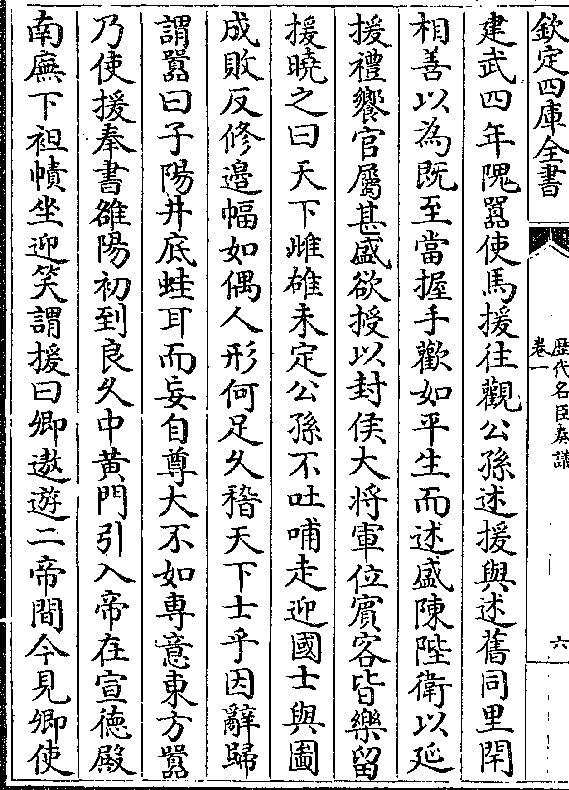 欽定四庫全書
歴代名臣奏議
卷一
六
建武四年隗囂使馬援往觀公孫述援與述舊同里閈
相善以為既至當握手歡如平生而述盛陳陛衛以延
援禮饗官屬甚盛欲授以封侯大將軍位賓客皆樂留
援曉之曰天下雌雄未定公孫不吐哺走迎國士與圖
成敗反修邉幅如偶人形何足久稽天下士乎因辭歸
謂囂曰子陽井底蛙耳而妄自尊大不如専意東方囂
乃使援奉書雒陽初到良久中黄門引入帝在宣徳殿
南廡下袒幘坐迎笑謂援曰卿遨遊二帝間今見卿使